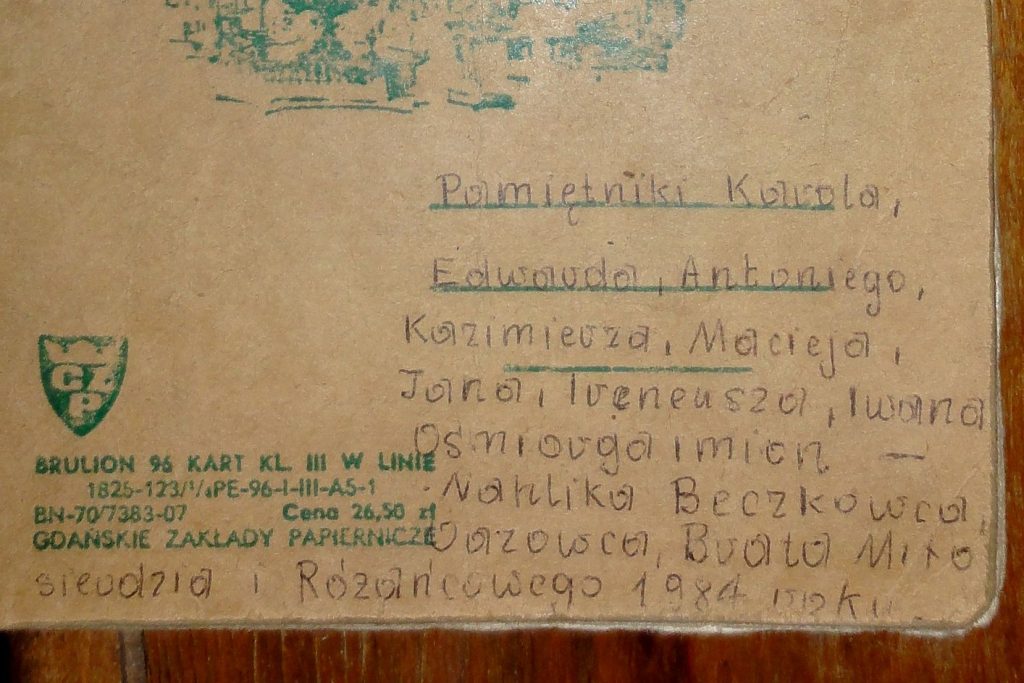 Pamiętniki Karola,
Edwarda, Antoniego,
Kazimierza, Macieja,
Jana, Ireneusza, Iwana
Ośmiorga imion —
Nahlika Beczkowca,
Oazowca, Brata Miło
sierdzia i Różańcowego 1984 roku.
CZ
P
BRULION 96 KART KL. III W LINIE
1825-123/¹/₄PE-96-I-III-A5-1
BN-70/7383-07 Cena 26,50 zł
GDAŃSKIE ZAKŁADY PAPIERNICZE